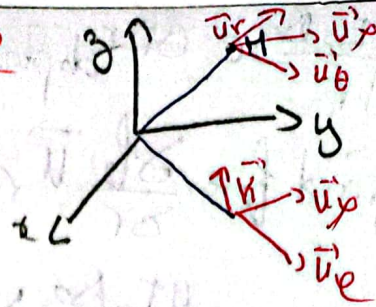 z
u⃗r
M
u⃗φ
u⃗θ
y
k⃗
u⃗φ
x
u⃗ρ